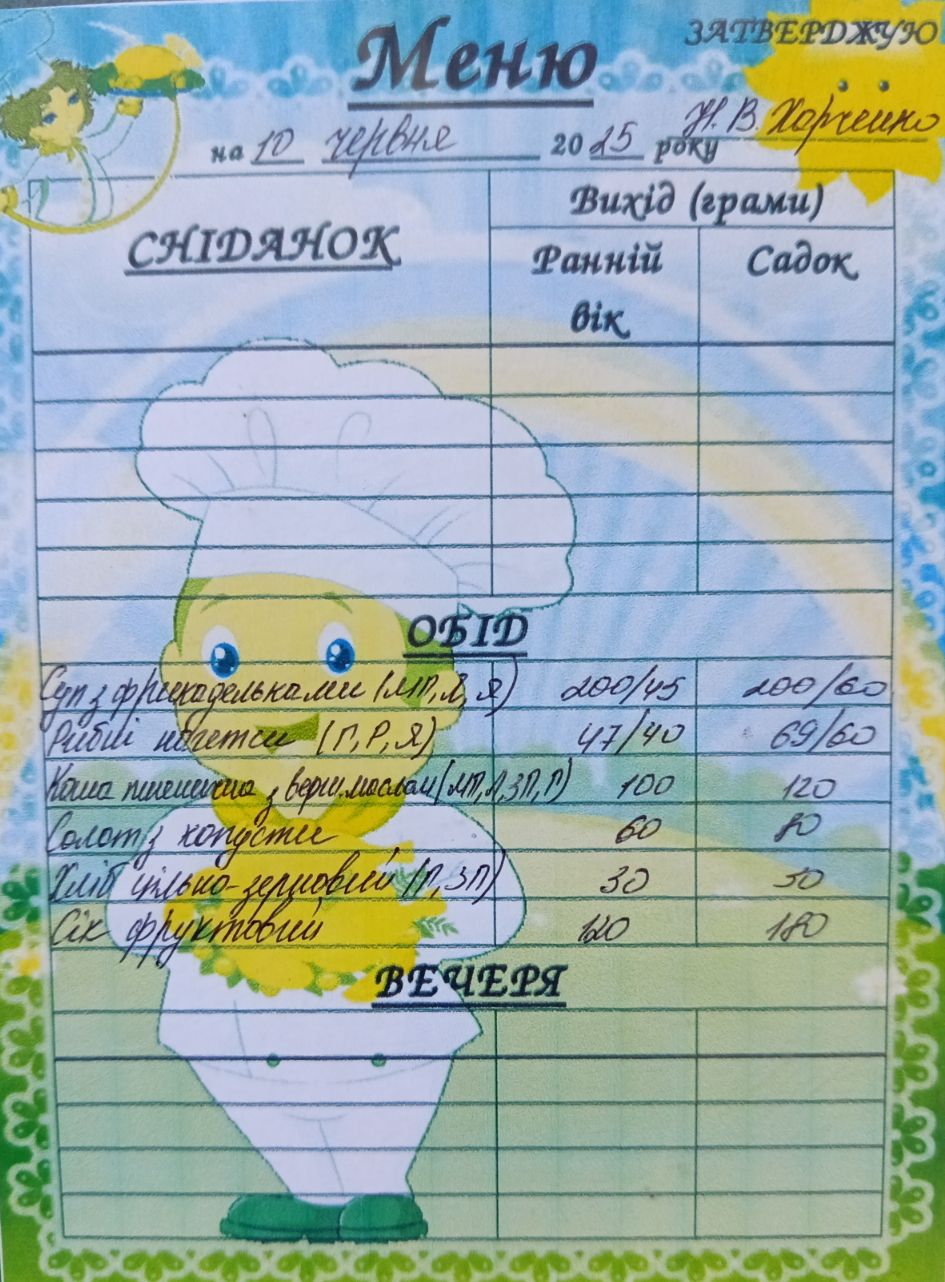 ЗАТВЕРДЖУЮ
Меню
Н. В. Харченко
на 10 червня 2025 року
СНІДАНОК
Вихід (грами)
Ранній вік
Садок
ОБІД
Суп з фрикадельками (МП, Л, Я) 200/45 200/60
Рибні нагетси (П, Р, Я) 47/40 69/60
Каша пшенична з верш. маслом (МП, Л, ЗП, П) 100 120
Салат з капусти 60 80
Хліб цільно-зерновий (П, ЗП) 30 50
Сік фруктовий 120 180
ВЕЧЕРЯ